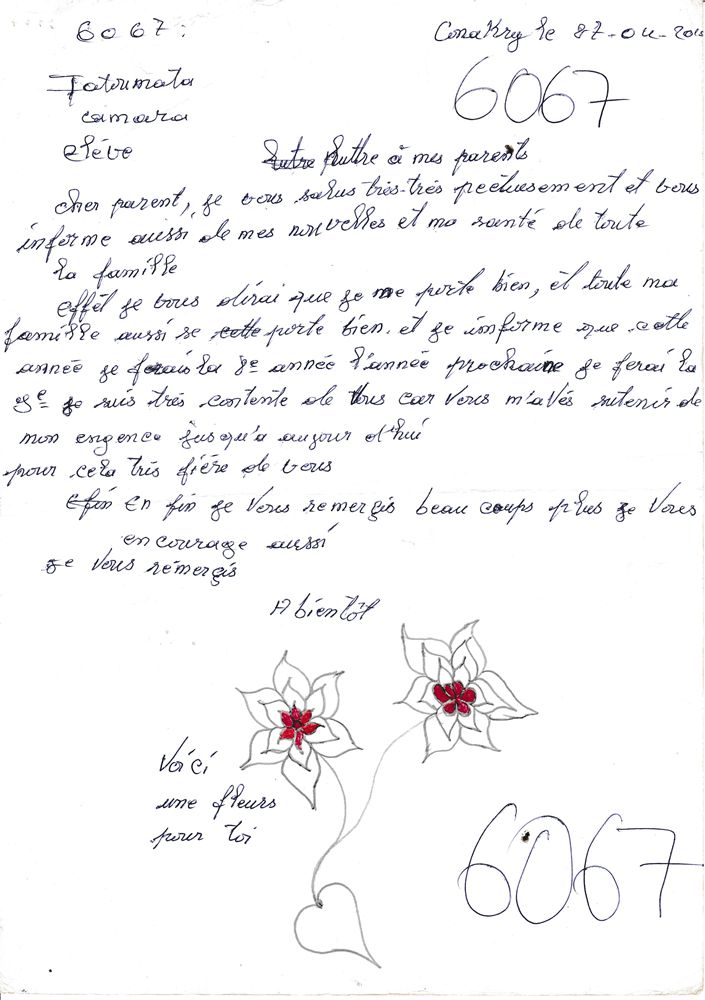 6067:
Conakry le 27-04-201
6067
Fatoumata
camara
elève
lettre à mes parents
cher parent, je vous salus très-très précieusement et vous
informe aussi de mes nouvelles et ma santé de toute
la famille
effêt je vous dirai que je me porte bien, èt toute ma
famille aussi se porte bien. et je informe que cette
année je ferais la 8e année l'année prochaine je ferai la
9e je suis très contente de Vous car Vous m'avés
mon jusqu'a aujour d'hui
pour cela très fière de vous
En fin je Vous remerçis beau coups plus je Vous
encourage aussi
Je Vous remerçis
A bientôt
Voici
une fleurs
pour toi
6067